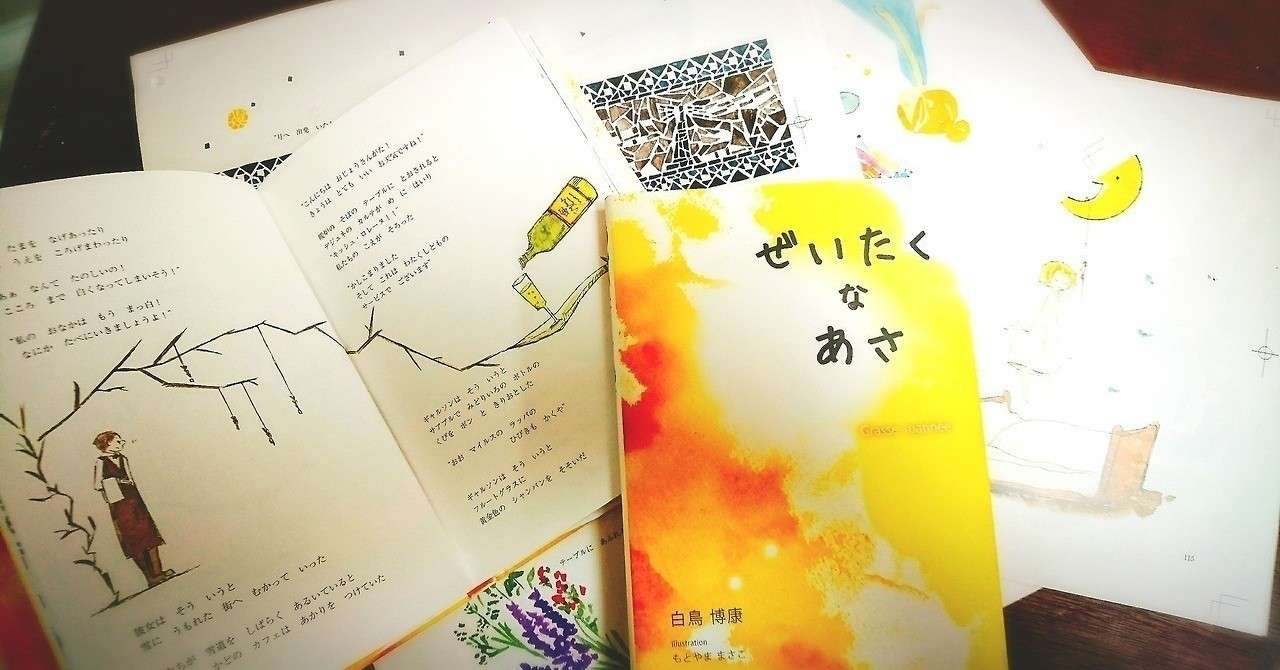 たまを なげあったり
うえを ころげまわったり
なんて たのしいの！
こころ まで 白くなってしまいそう！"
"私の おなかは もう まっ白！
なにか たべにいきましょうよ！"
彼女は そう いうと
雪に うもれた 街へ むかって いった
雪道を しばらく あるいていると
かどの カフェは あかりを つけていた
"こんにちは おじょうさんがた！
きょうは とても いい お天気ですね！"
そばの テーブルに とおされると
め に はいり
"キッシュ・ロレーヌ！"
私たちの こえが そろった
"かしこまりました
そして これは わたくしどもの
サービスで ございます"
ギャルソンは そう いうと
サーブルで みどりいろの ボトルの
くびを ポン と きりおとした
"おお マイルスの ラッパの
ひびきも かくや"
ギャルソンは そう いうと
フルートグラスに
黄金色の シャンパンを そそいだ
"月へ 出発
テーブルに
ぜいたく
な
あさ
白鳥 博康
Illustration
もとやま まさこ
115